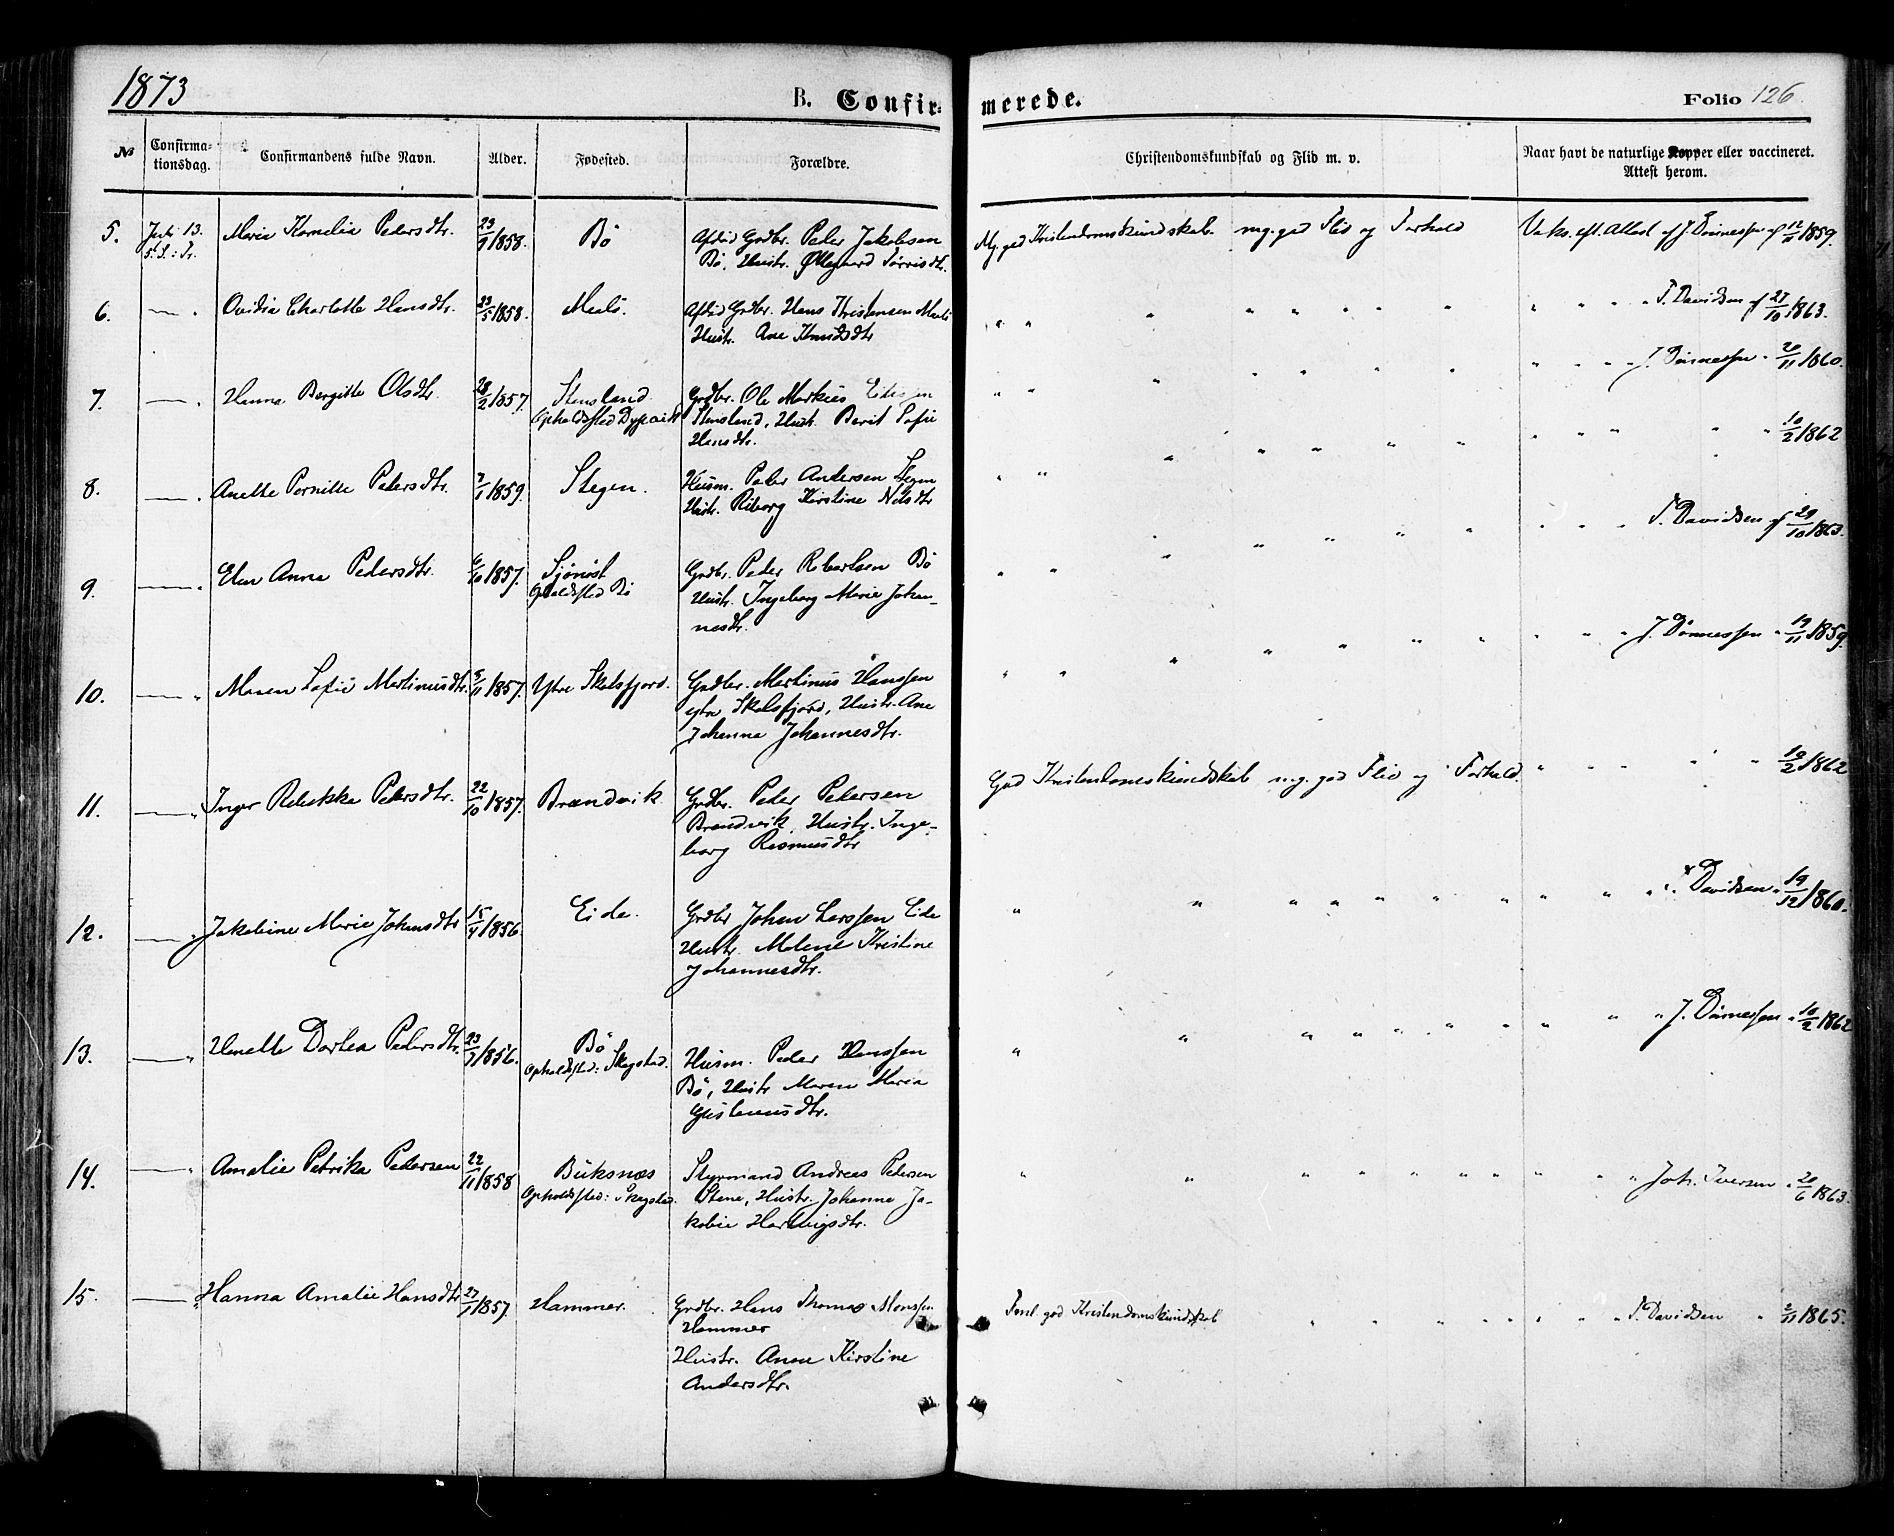 1873
B. Confir-
merede.
Folio 126
№
Confirma-
tionsdag.
Confirmandens fulde Navn.
Alder.
Fødested.
Forældre.
Christendomskundskab og Flid m. v.
Naar havt de naturlige Kopper eller vaccineret.
Attest herom.
5. Juli 13. Marie Kornelia Pedersdtr. 23/9 1858. Bø Afdød Grdbr. Peder Jakobsen
Bø, Hustr. Øllegaard Sørrisdtr.
Mg. god Kristendomskundskab. mg. god Flid og Forhold Vaks. eft. Attest af J. Dønnessen af 12/11 1859.
6. — " Ovidia Charlotte Hansdtr. 23/5 1858. Meelö. Afdød Grdbr. Hans Kristensen Meelö
Hustr. Ane Knudsdtr
" " " " " " " " " " " T. Davidsen af 27/10 1863.
7. — " Hanna Bergitte Olsdtr. 28/2 1857. Stensland. Grdbr. Ole Markus
Opholdssted Dypvik Stensland, Hustr. Berit Sofie
Hansdtr.
" " " " " " " " " " J. Dønnessen " 20/11 1860.
8. — " Anette Pernille Pedersdtr. 7/1 1859. Stegen. Husm. Peder Andersen Stegen
Hustr. Riborg Kirstine Nilsdtr
" " " " " " " " " " " " 10/2 1862
9. — " Elen Anna Pedersdtr. 6/10 1857. Sjönöst Grdbr. Peder Robertsen Bö
Opholdssted Bö Hustr. Ingeborg Marie Johan-
nesdtr.
" " " " " " " " " " T. Davidsen af 29/10 1863.
10. — " Maren Sofie Martinusdtr. 9/11 1857. Ytre Skotsfjord. Grdbr. Martinus Hanssen
ytre Skotsfjord, Hustr. Ane
Johanna Johannesdtr.
" " " " " " " " " " J. Dønnessen " 19/11 1859.
11. — " Inger Rebekka Pedersdtr. 22/10 1857. Brændvik Grdbr. Peder Pedersen
Brændvik, Hustr. Inge-
borg Rasmusdtr
God Kristendomskundskab mg. god Flid og Forhold. " " " " " 10/2 1862
12. — " Jakobine Marie Johansdtr 15/4 1856 Eide. Grdbr Johan Larssen Eide
Hustr. Malene Kristine
Johannesdtr.
" " " " " " " " " " T. Davidsen " 19/12 1860.
13. — " Henette Dortea Pedersdtr. 23/7 1856. Bö Husm. Peder Hanssen
Opholdssted: Skagstad. Bö, Hustr Maren Maria
Gustavusdtr.
" " " " " " " " " " J. Dønnessen " 10/2 1862
14. — " Amalie Petrika Pedersen 22/11 1858 Buksnæs Styrmand Andreas Petersen
Opholdssted: Skagstad. Stene, Hustr. Johanna Ja-
kobie Hartvigsdtr.
" " " " " " " " " " Joh. Iversen " 20/6 1863.
15. — " Hanna Amalie Hansdtr 27/1 1857. Hammer. Grdbr. Hans Thomas Monssen
Hammer
Hustr. Anne Kirstine
Andersdtr.
Teml. god Kristendomskundskab " " " " " " " " T. Davidsen " 2/11 1865.